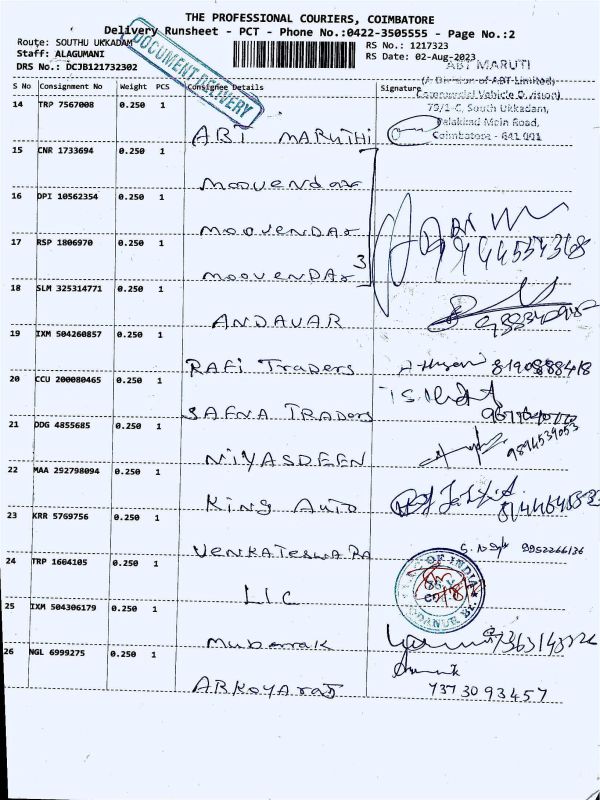 THE PROFESSIONAL COURIERS, COIMBATORE
Delivery Runsheet - PCT - Phone No.:0422-3505555 - Page No.:2
Route: SOUTHU UKKADAM
RS No.: 1217323
Staff: ALAGUMANI
RS Date: 02-Aug-2023
DRS No.: DCJB121732302
DOCUMENT DELIVERY
ABT MARUTI
(A Division of ABT Limited)
Commercial Vehicle Division)
79/1-C, South Ukkadam,
Palakkad Main Road,
Coimbatore - 641 001
S No Consignment No Weight PCS Consignee Details Signature
14 TRP 7567008 0.250 1
ABT MARUTHI
15 CNR 1733694 0.250 1
moovendar
16 DPI 10562354 0.250 1
mooVENDAr
17 RSP 1806970 0.250 1
mooVENDAr 3
18 SLM 325314771 0.250 1
ANDAVAR
19 IXM 504260857 0.250 1
RAFI Traders 8190888418
20 CCU 200080465 0.250 1
SAFNA TRADers
21 DDG 4855685 0.250 1
NIYASDEEN 9894539053
22 MAA 292798094 0.250 1
King Auto
23 KRR 5769756 0.250 1
VENKATESWARA 9952266136
24 TRP 1604105 0.250 1
LIC
BANK OF INDIA
25 IXM 504306179 0.250 1
Mubarrak
26 NGL 6999275 0.250 1
ARKOYArAJ 7373093457